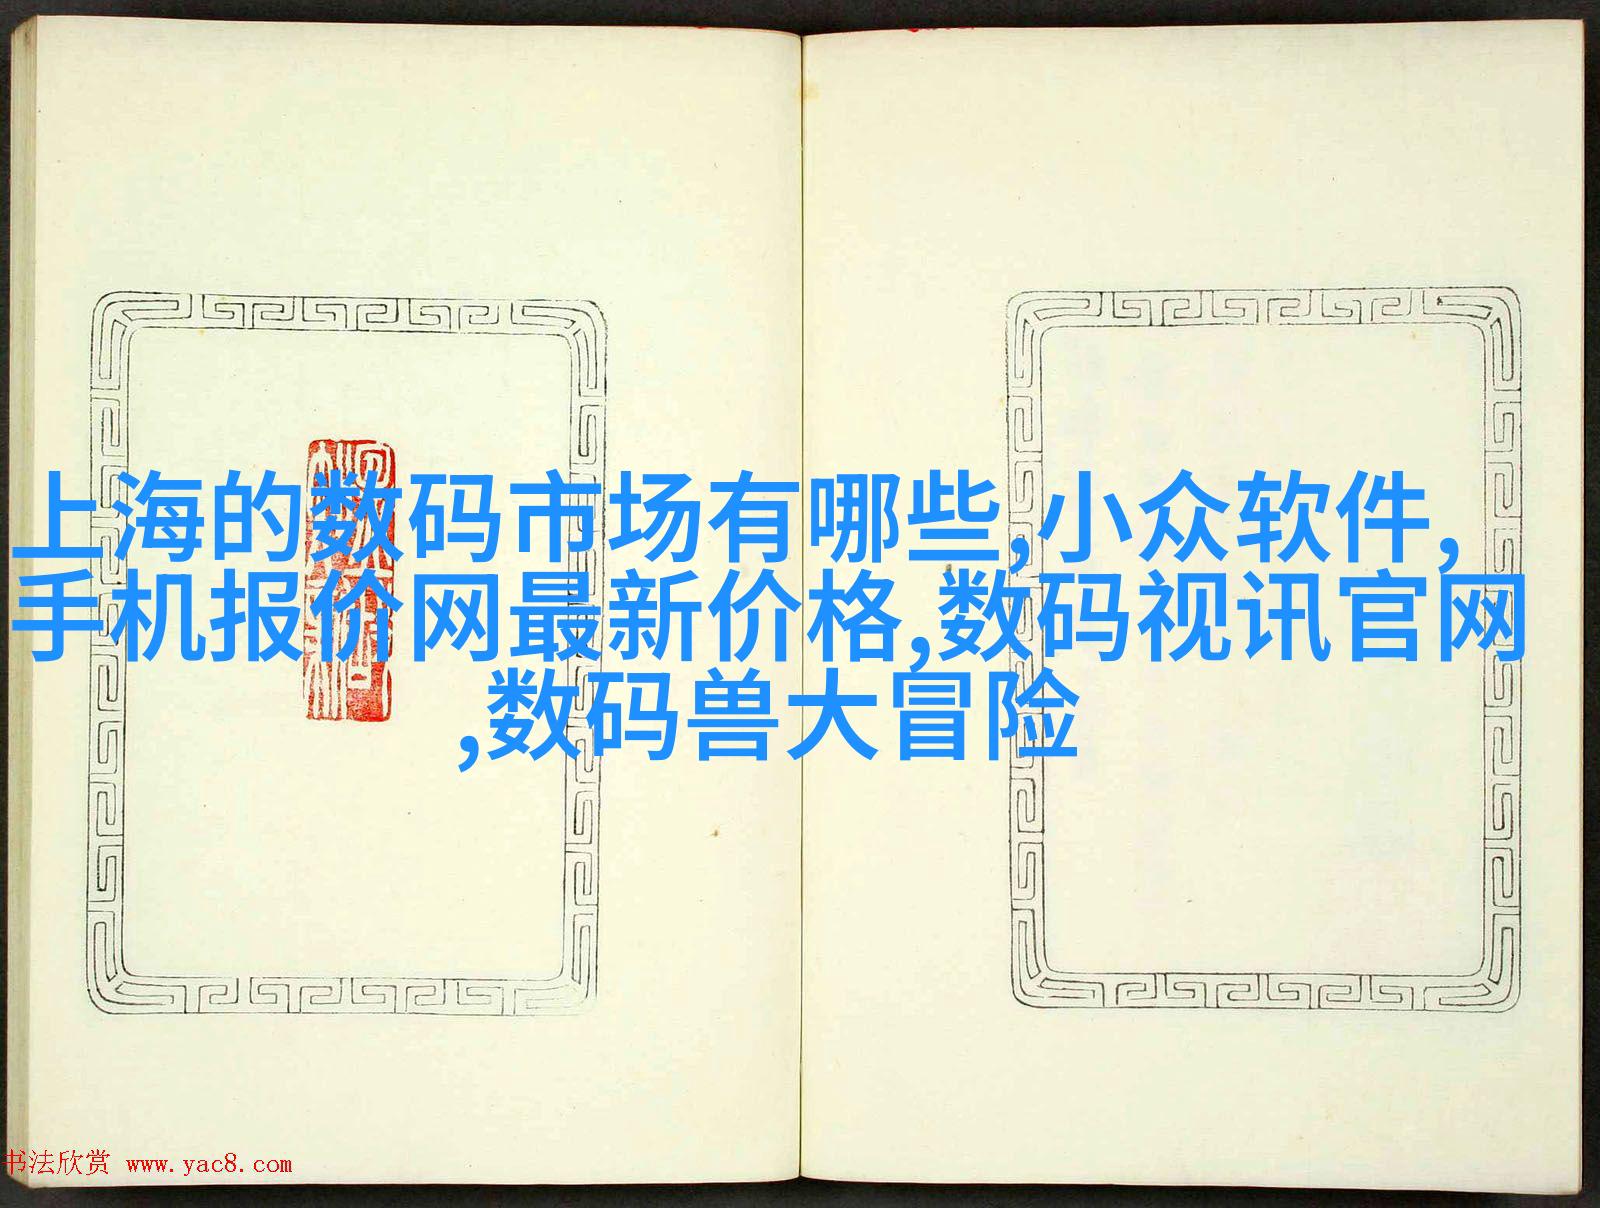 上海的数码市场有哪些,小众软件,
手机报价网最新价格,数码视讯官网
,数码兽大冒险
书法欣赏 www.yac8.com